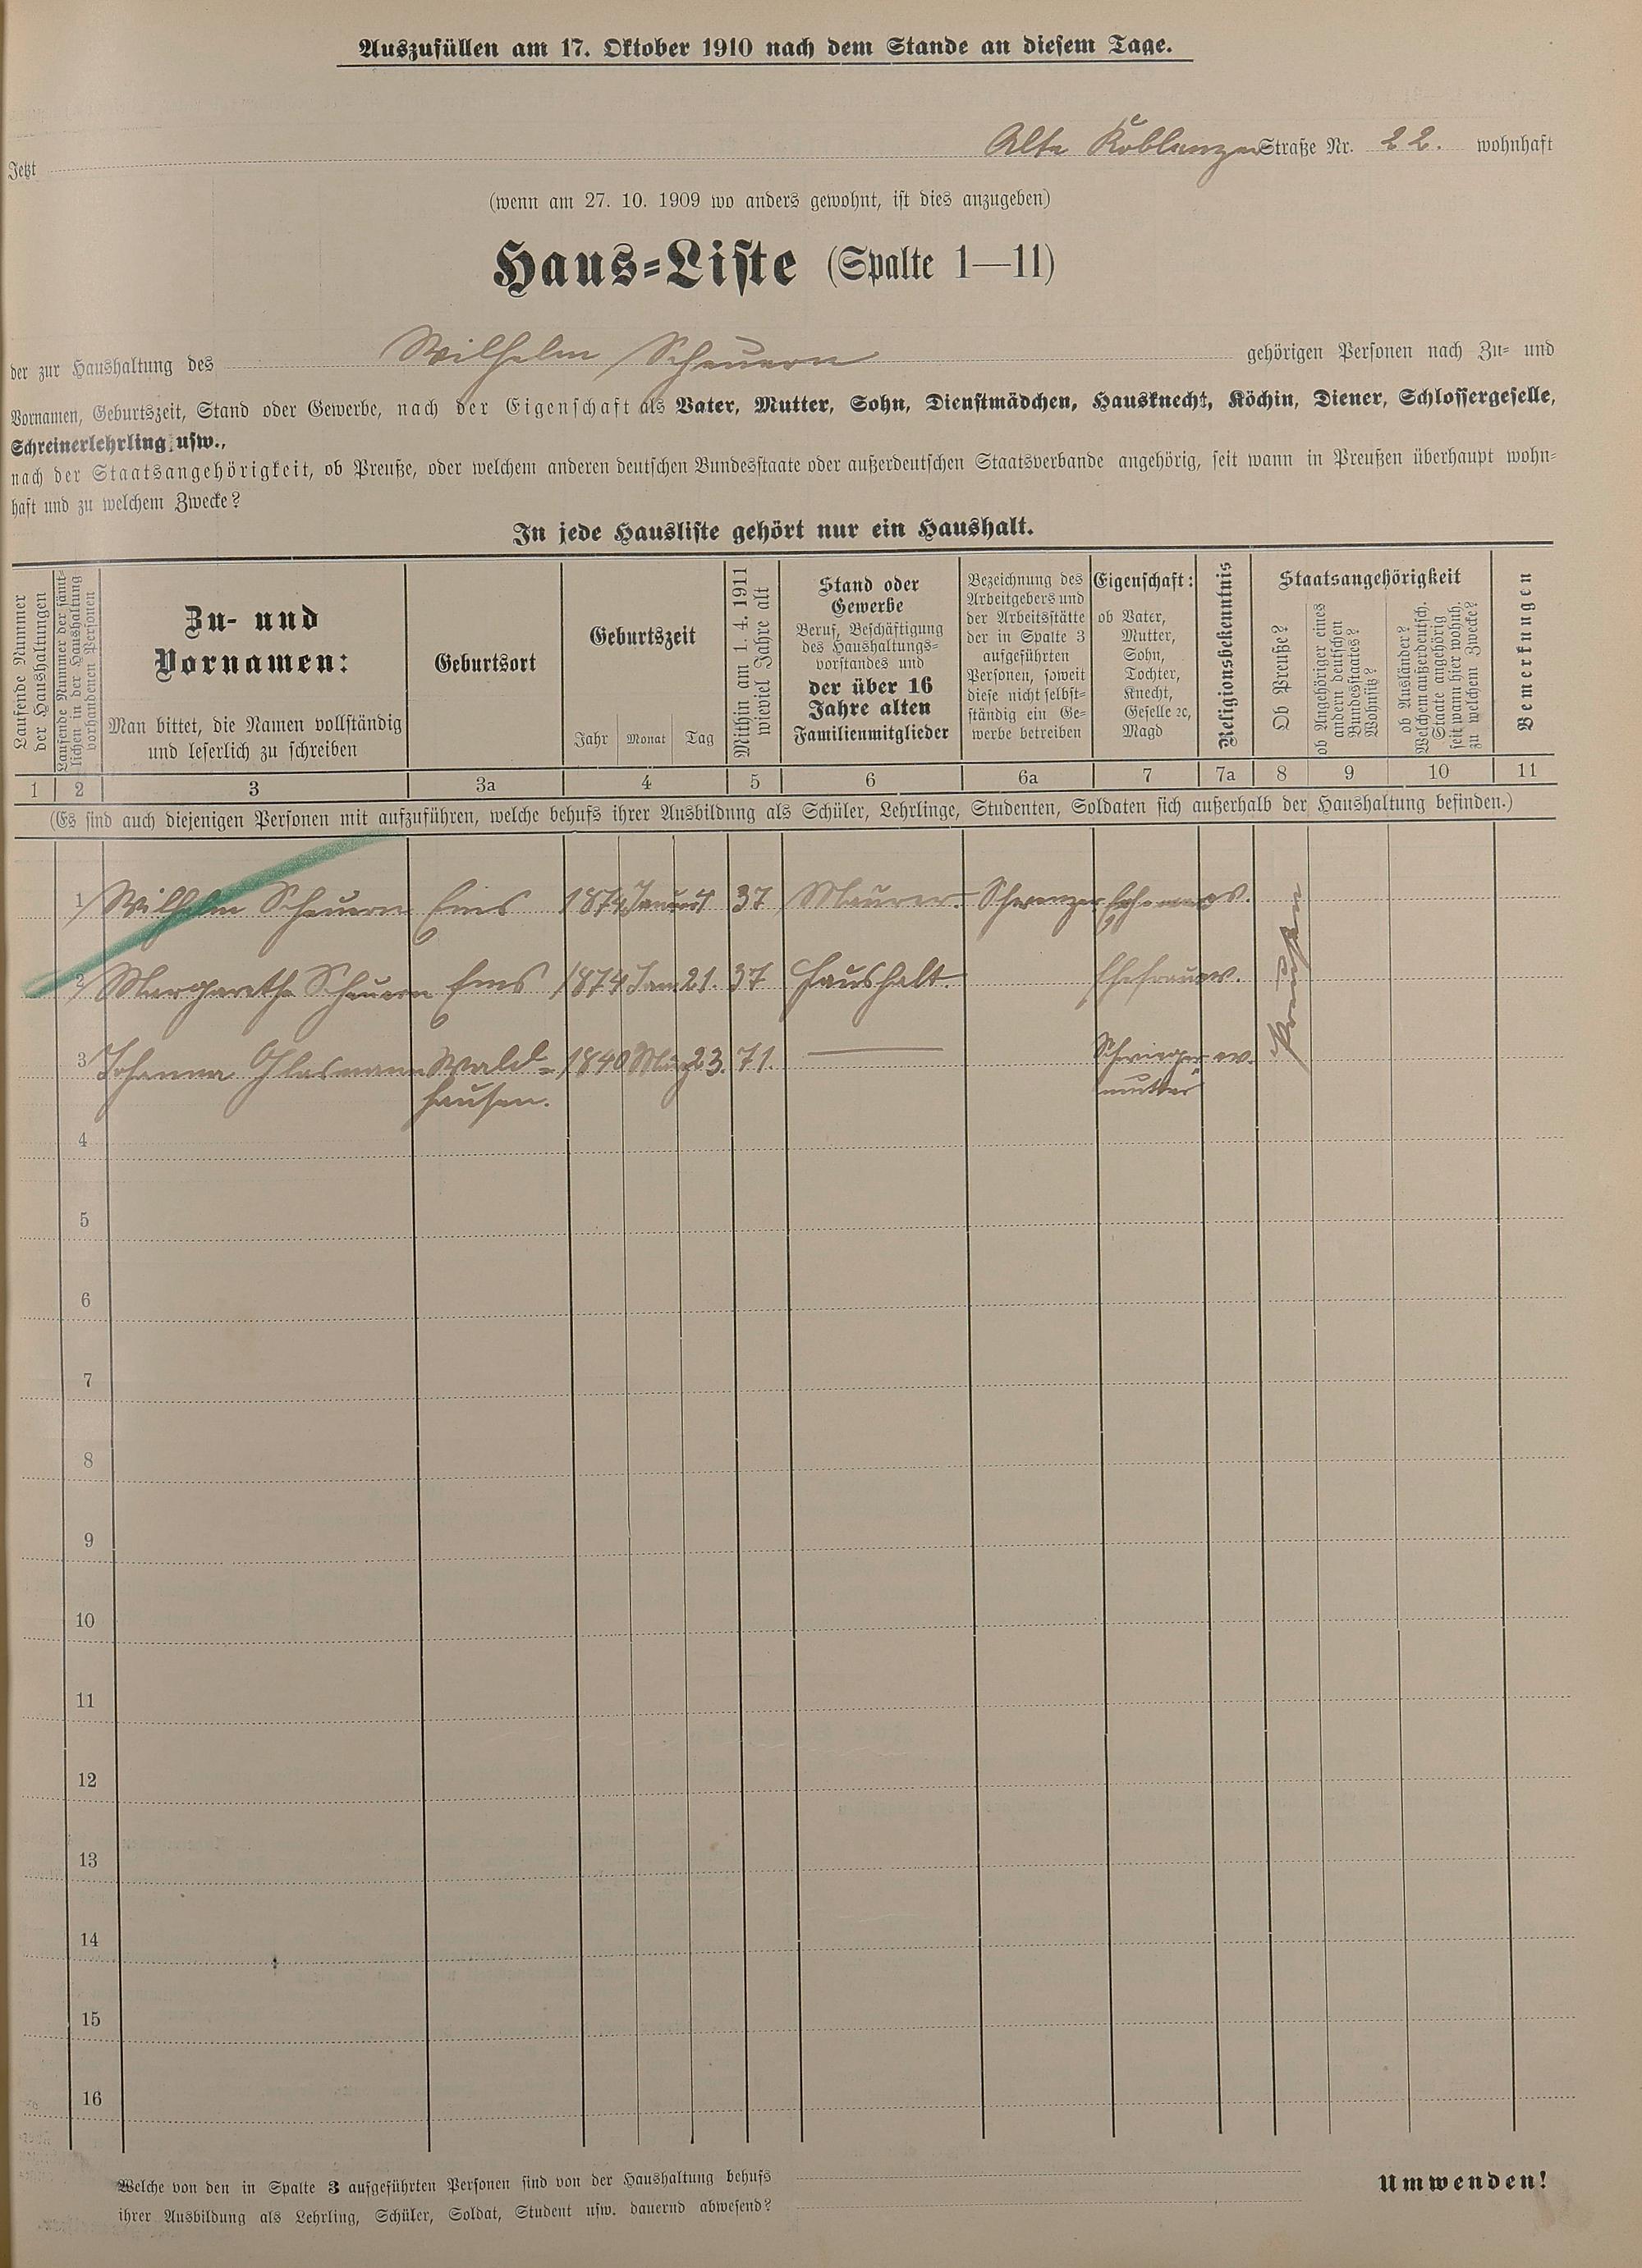 Auszufüllen am 17. Oktober 1910 nach dem Stande an diesem Tage.
Jetzt Alte Koblenzer Straße Nr. 22. wohnhaft
(wenn am 27. 10. 1909 wo anders gewohnt, ist dies anzugeben)
Haus-Liste (Spalte 1—11)
der zur Haushaltung des Wilhelm Scheuern gehörigen Personen nach Zu- und
Vornamen, Geburtszeit, Stand oder Gewerbe, nach der Eigenschaft als Vater, Mutter, Sohn, Dienstmädchen, Hausknecht, Köchin, Diener, Schlossergeselle,
Schreinerlehrling usw.,
nach der Staatsangehörigkeit, ob Preuße, oder welchem anderen deutschen Bundesstaate oder außerdeutschen Staatsverbande angehörig, seit wann in Preußen überhaupt wohn-
haft und zu welchem Zwecke?
In jede Hausliste gehört nur ein Haushalt.
Laufende Nummer
der Haushaltungen
Laufende Nummer der sämt-
lichen in der Haushaltung
vorhandenen Personen
Zu- und
Vornamen:
Man bittet, die Namen vollständig
und leserlich zu schreiben
Geburtsort
Geburtszeit
Jahr Monat Tag
Mithin am 1. 4. 1911
wieviel Jahre alt
Stand oder
Gewerbe
Beruf, Beschäftigung
des Haushaltungs-
vorstandes und
der über 16
Jahre alten
Familienmitglieder
Bezeichnung des
Arbeitgebers und
der Arbeitsstätte
der in Spalte 3
aufgeführten
Personen, soweit
diese nicht selbst-
ständig ein Ge-
werbe betreiben
Eigenschaft:
ob Vater,
Mutter,
Sohn,
Tochter,
Knecht,
Geselle ꝛc,
Magd
Religionsbekenntnis
Staatsangehörigkeit
Ob Preuße?
ob Angehöriger eines
andern deutschen
Bundesstaates?
Wohnsitz?
ob Ausländer?
Welchem außerdeutsch.
Staate angehörig
seit wann hier wohnh.
zu welchem Zwecke?
Bemerkungen
1 2 3 3a 4 5 6 6a 7 7a 8 9 10 11
(Es sind auch diejenigen Personen mit aufzuführen, welche behufs ihrer Ausbildung als Schüler, Lehrlinge, Studenten, Soldaten sich außerhalb der Haushaltung befinden.)
1 Wilhelm Scheuern Ems 1874 37 Maurer. ev.
2 Margarethe Scheuern Ems 1874 Jan 21. 37 Haushalt. Ehefrau ev.
Preußen
3 Johanna Glasmann Wald- 1840 März 23. 71. Schwieger ev.
hausen. mutter
4
5
6
7
8
9
10
11
12
13
14
15
16
Welche von den in Spalte 3 aufgeführten Personen sind von der Haushaltung behufs
ihrer Ausbildung als Lehrling, Schüler, Soldat, Student usw. dauernd abwesend?
Umwenden!